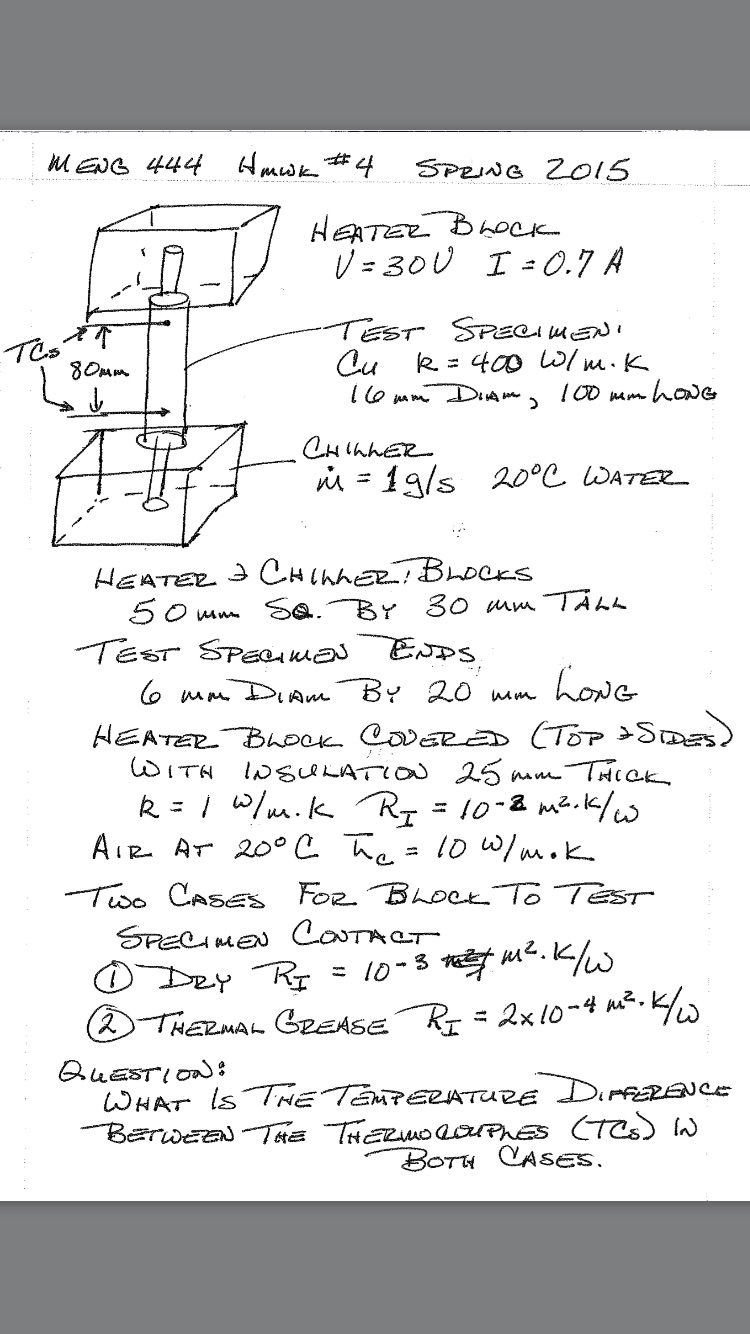 MENG 444 HMWK #4 SPRING 2015
HEATER BLOCK
V = 30V I = 0.7 A
TCs
80mm
TEST SPECIMEN:
Cu k = 400 W/m.K
16 mm DIAM, 100 mm LONG
CHILLER
ṁ = 1g/s 20°C WATER
HEATER & CHILLER BLOCKS
50 mm SQ. BY 30 mm TALL
TEST SPECIMEN ENDS
6 mm DIAM BY 20 mm LONG
HEATER BLOCK COVERED (TOP & SIDES)
WITH INSULATION 25 mm THICK
k = 1 W/m.K R_I = 10-2 m².K/W
AIR AT 20°C h̄c = 10 W/m.K
TWO CASES FOR BLOCK TO TEST
SPECIMEN CONTACT
① DRY R_I = 10-3 m².K/W
② THERMAL GREASE R_I = 2x10-4 m².K/W
QUESTION:
WHAT IS THE TEMPERATURE DIFFERENCE
BETWEEN THE THERMOCOUPLES (TCs) IN
BOTH CASES.